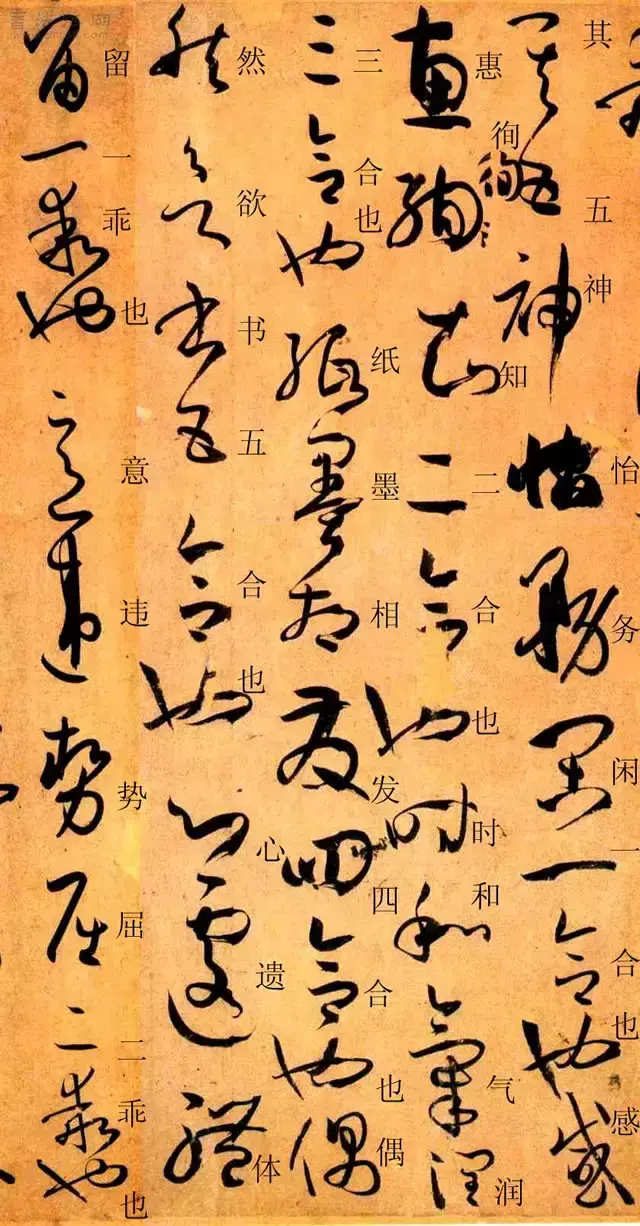 其五神怡务闲一合也感
惠徇知二合也时和气润
三合也纸墨相发四合也偶
然欲书五合也心遗体
留一乖也意违势屈二乖也